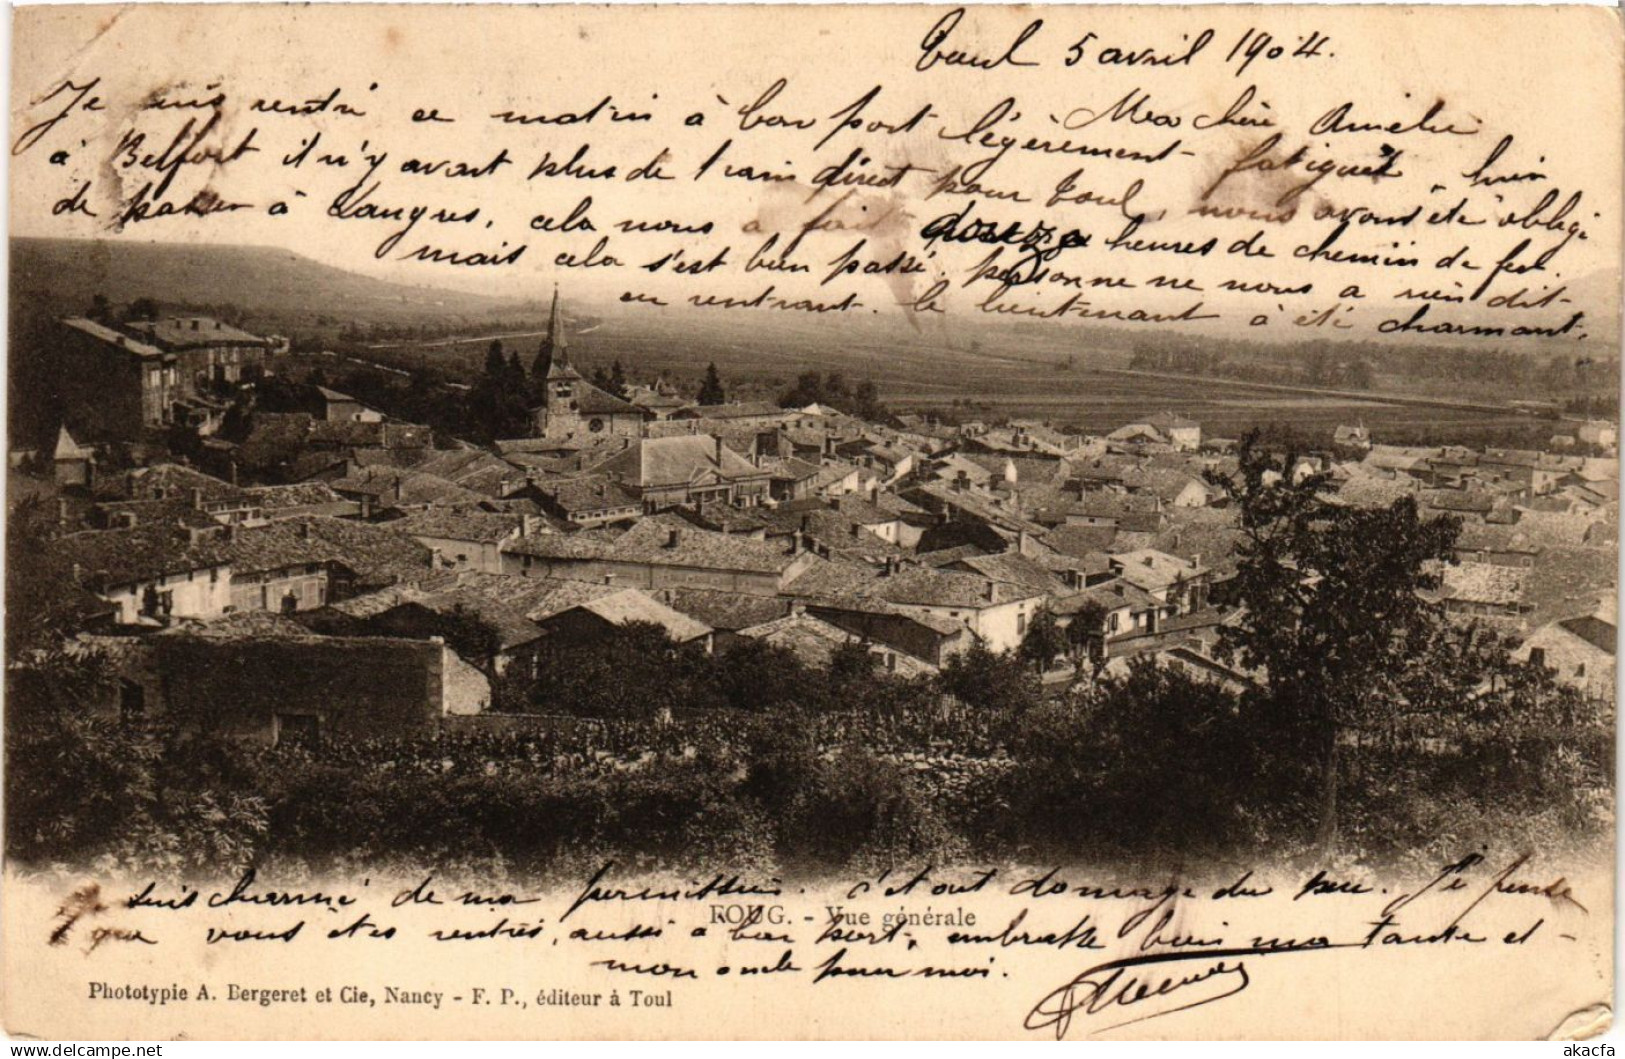 Toul 5 avril 1904.
Ma chère Amélie
Je suis rentré ce matin à bon port légèrement fatigué, hier
à Belfort il n'y avait plus de train direct pour Toul, nous avons été obligé
de passer à Langres, cela nous a fait douze heures de chemin de fer.
mais cela s'est bien passé. personne ne nous a rien dit
en rentrant. le lieutenant a été charmant,
suis charmé de ma permission. c'était dommage du peu. Je pense
que vous êtes rentrés, aussi à bon port, embrasse bien ma tante et
mon oncle pour moi.
FOUG. - Vue générale
Phototypie A. Bergeret et Cie, Nancy - F. P., éditeur à Toul
akacfa
https://www.delcampe.net